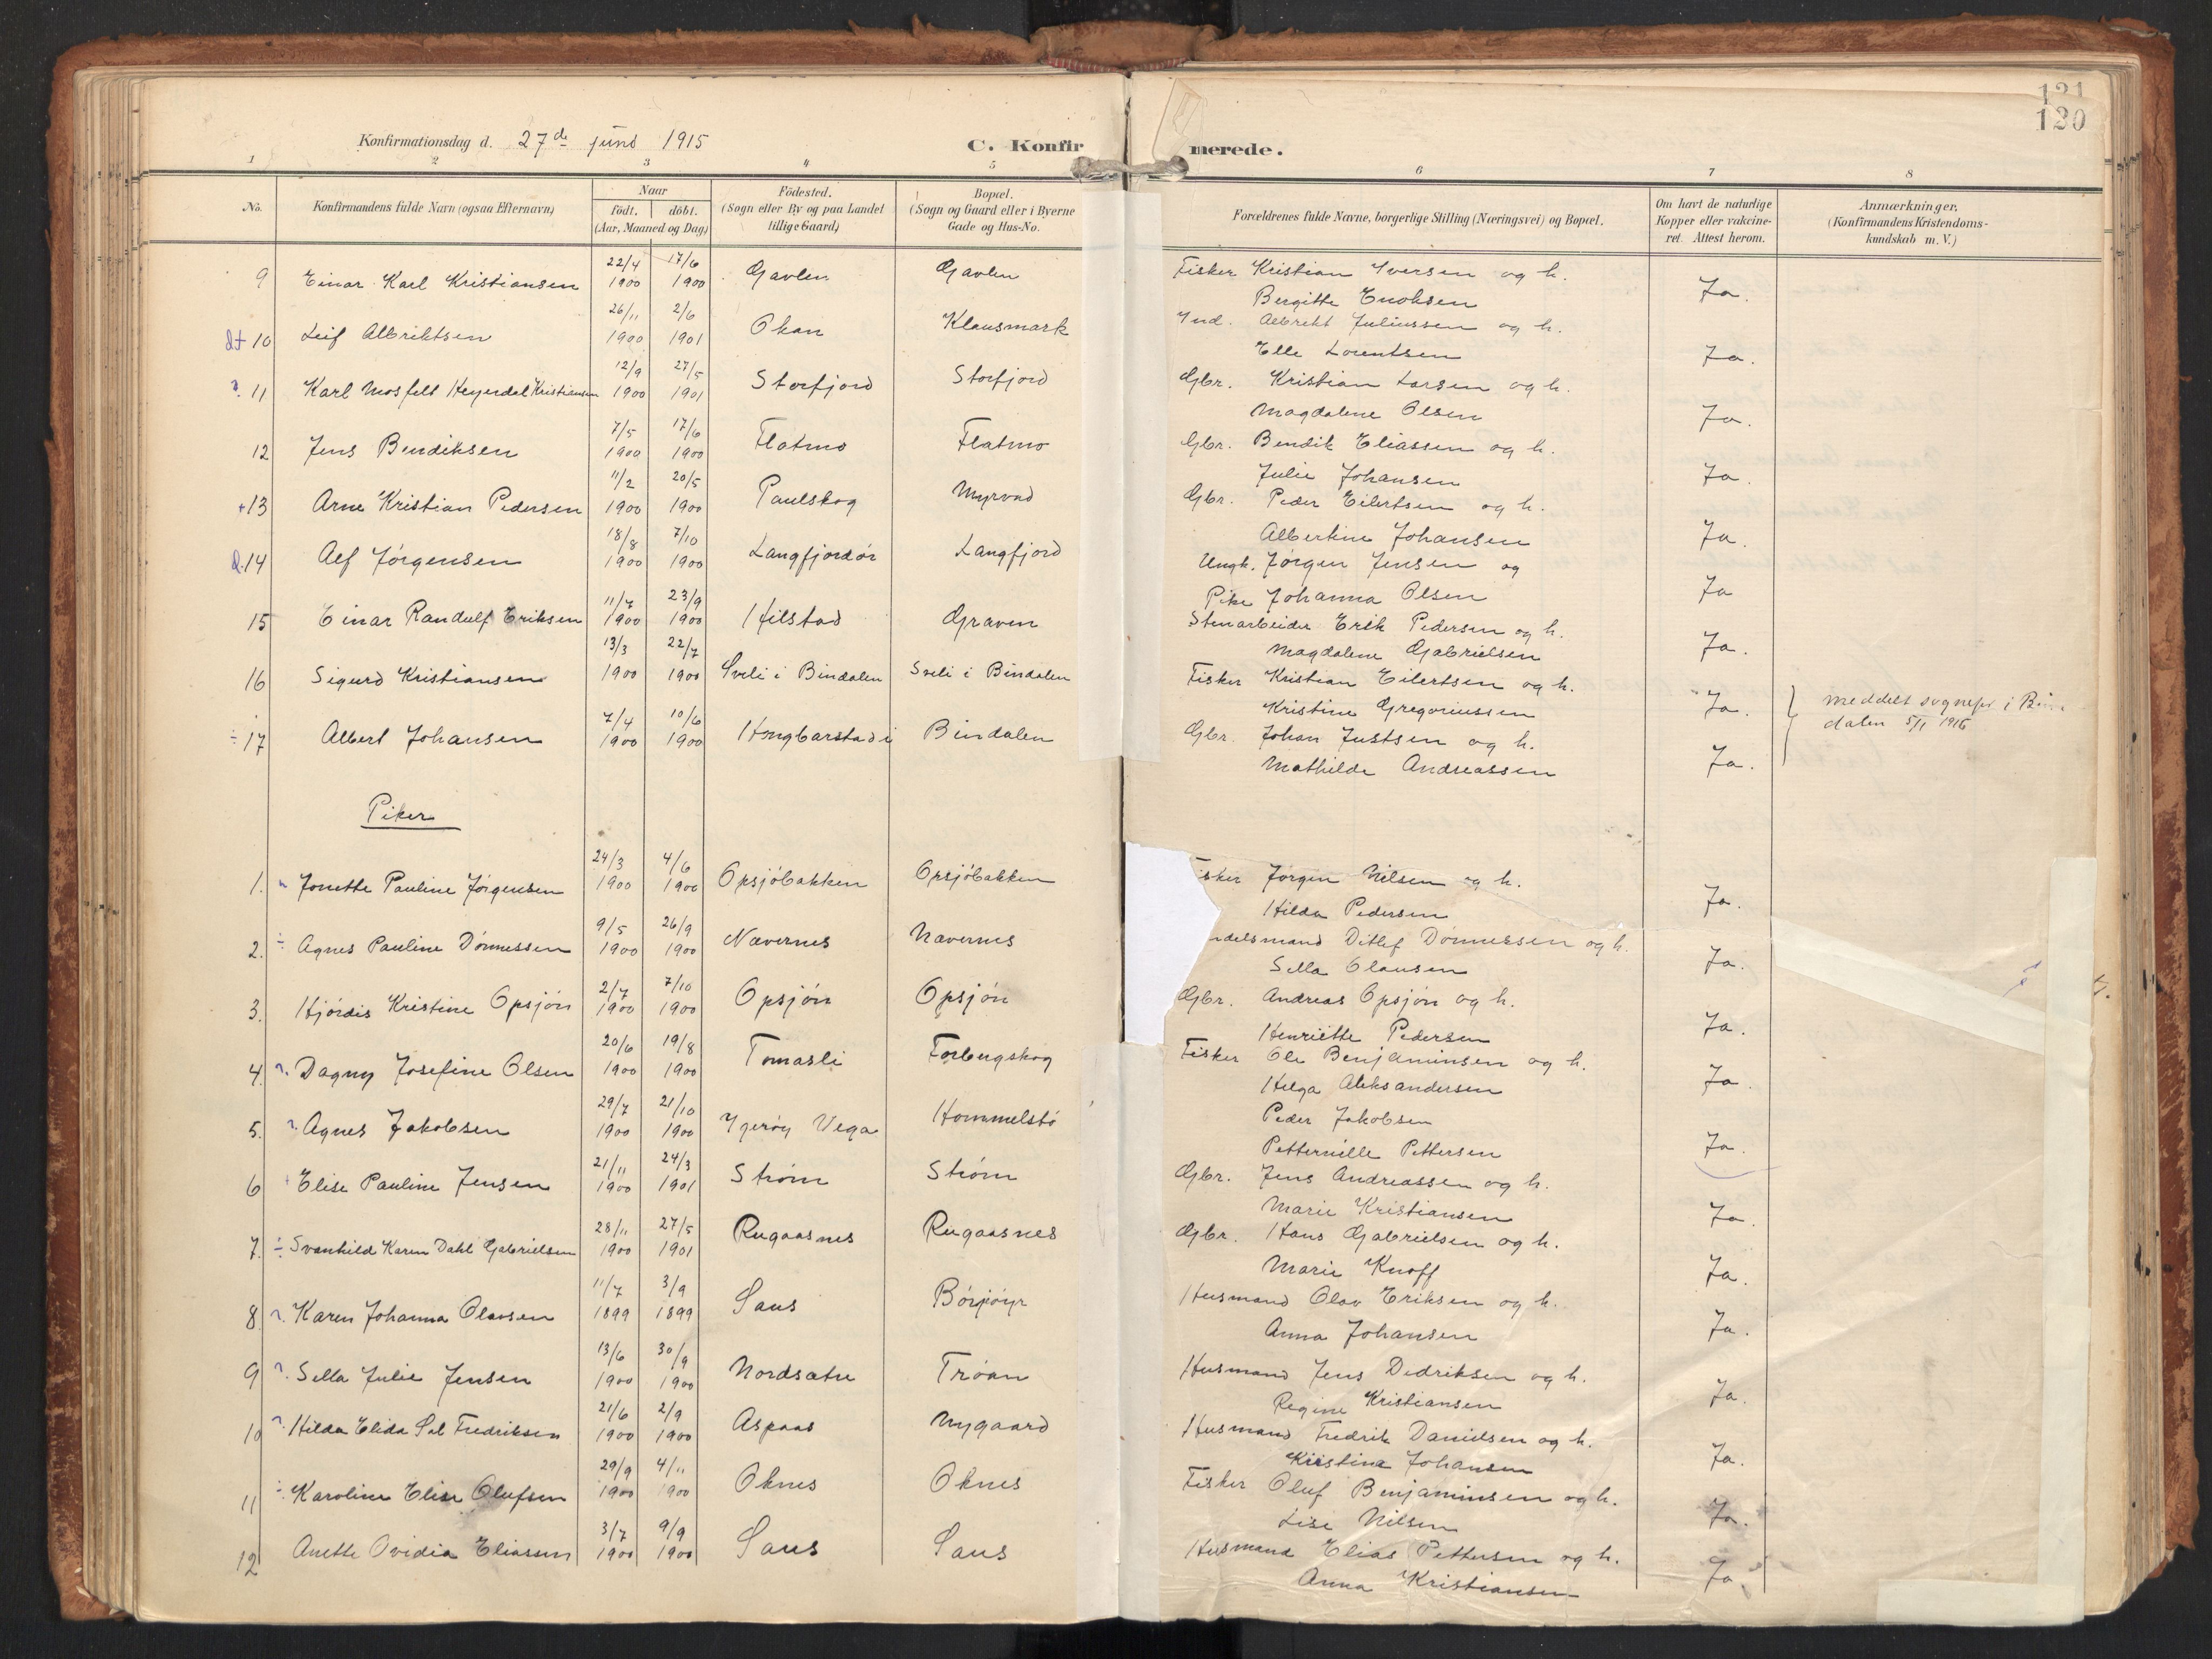 121
120
Konfirmationsdag d. 27de juni 1915
C. Konfirmerede.
1 2 3 4 5 6 7 8
No.
Konfirmandens fulde Navn (ogsaa Efternavn)
Naar
födt. döbt.
(Aar, Maaned og Dag)
Födested.
(Sogn eller By og paa Landet
tillige Gaard)
Bopæl.
(Sogn og Gaard eller i Byerne
Gade og Hus-No.
Forældrenes fulde Navne, borgerlige Stilling (Næringsvei) og Bopæl.
Om havt de naturlige
Kopper eller vakcine-
ret. Attest herom.
Anmærkninger,
(Konfirmandens Kristendoms-
kundskab m. V.)
22/4 17/6
9 Einar Karl Kristiansen 1900 1900 Gavlen Gavlen Fisker Kristian Iversen og h.
Bergitte Enoksen Ja.
26/11 2/6
10 Leif Albriktsen 1900 1901 Okan Klausmark Ind. Albrikt Juliussen og h.
Elle Lorentsen Ja.
12/9 27/5
11 Karl Mosfelt Heyerdal Kristiansen 1900 1901 Storfjord Storfjord Gbr. Kristian Larsen og h.
Magdalene Olsen Ja.
7/5 17/6
12 Jens Bendiksen 1900 1900 Flatmo Flatmo Gbr. Bendik Eliassen og h.
Julie Johansen Ja.
11/2 20/5
+13 Arne Kristian Pedersen 1900 1900 Paulskog Myrvad Gbr. Peder Eilertsen og h.
Albertine Johansen Ja.
18/8 7/10
14 Alf Jörgensen 1900 1900 Langfjordör Langfjord Ungk. Jörgen Jensen og
Pike Johanna Olsen Ja
11/7 23/9
15 Einar Randulf Eriksen 1900 1900 Hilstad Graven Stenarbeider Erik Pedersen og h.
Magdalene Gabrielsen Ja.
13/3 22/7
16 Sigurd Kristiansen 1900 1900 Sveli i Bindalen Sveli i Bindalen Fisker Kristian Eilertsen og h.
Kristine Gregoriussen Ja. } meddelt sognepr i Bin
dalen 5/1 1916
7/4 10/6
÷ 17 Albert Johansen 1900 1900 Hongbarstad i Bindalen Gbr. Johan Justsen og h.
Mathilde Andreassen Ja.
Piker
24/3 4/6
1. Jonette Pauline Jörgensen 1900 1900 Opsjöbakken Opsjöbakken isker Jörgen Nilsen og h.
Hilda Pedersen Ja.
9/5 26/9
2. ÷ Agnes Pauline Dönnessen 1900 1900 Nævernes Nævernes ndelsmand Ditlef Dönnessen og h.
Sella Olausen Ja.
2/7 7/10
3. Hjördis Kristine Opsjön 1900 1900 Opsjön Opsjön Gbr. Andreas Opsjön og h.
Henriette Pedersen Ja.
20/6 19/8
4. Dagny Josefine Olsen 1900 1900 Tomasli Forbergskog Fisker Ole Benjaminsen og h.
Helga Aleksandersen Ja.
29/7 21/10
5. Agnes Jakobsen 1900 1900 Ygeröy Vega Hommelstö Peder Jakobsen
Petternille Pettersen Ja.
21/11 24/3
6 Elise Pauline Jensen 1900 1901 Ström Ström Gbr. Jens Andreassen og h.
Marie Kristiansen Ja.
28/11 27/5
7. ÷ Svanhild Karen Dahl Gabrielsen 1900 1901 Rugaasnes Rugaasnes Gbr. Hans Gabrielsen og h.
Marie Knoff Ja.
11/7 3/9
8. Karen Johanna Olavsen 1899 1899 Saus Börjöyr Husmand Olav Eriksen og h.
Anna Johansen Ja.
13/6 30/9
9 Sella Julie Jensen 1900 1900 Nordsætre Tröan Husmand Jens Dedriksen og h.
Regine Kristiansen Ja.
21/6 2/9
10 Hilda Elida Sel Fredriksen 1900 1900 Aspaas Nygaard Husmand Fredrik Danielsen og h.
Kristine Johansen Ja.
29/9 4/11
11 ÷ Karoline Elise Olufsen 1900 1900 Oknes Oknes Fisker Oluf Benjaminsen og h.
Lise Nilsen Ja.
3/7 9/9
12 Anette Ovidia Eliassen 1900 1900 Saus Saus Husmand Elias Pettersen og h.
Anna Kristiansen Ja.